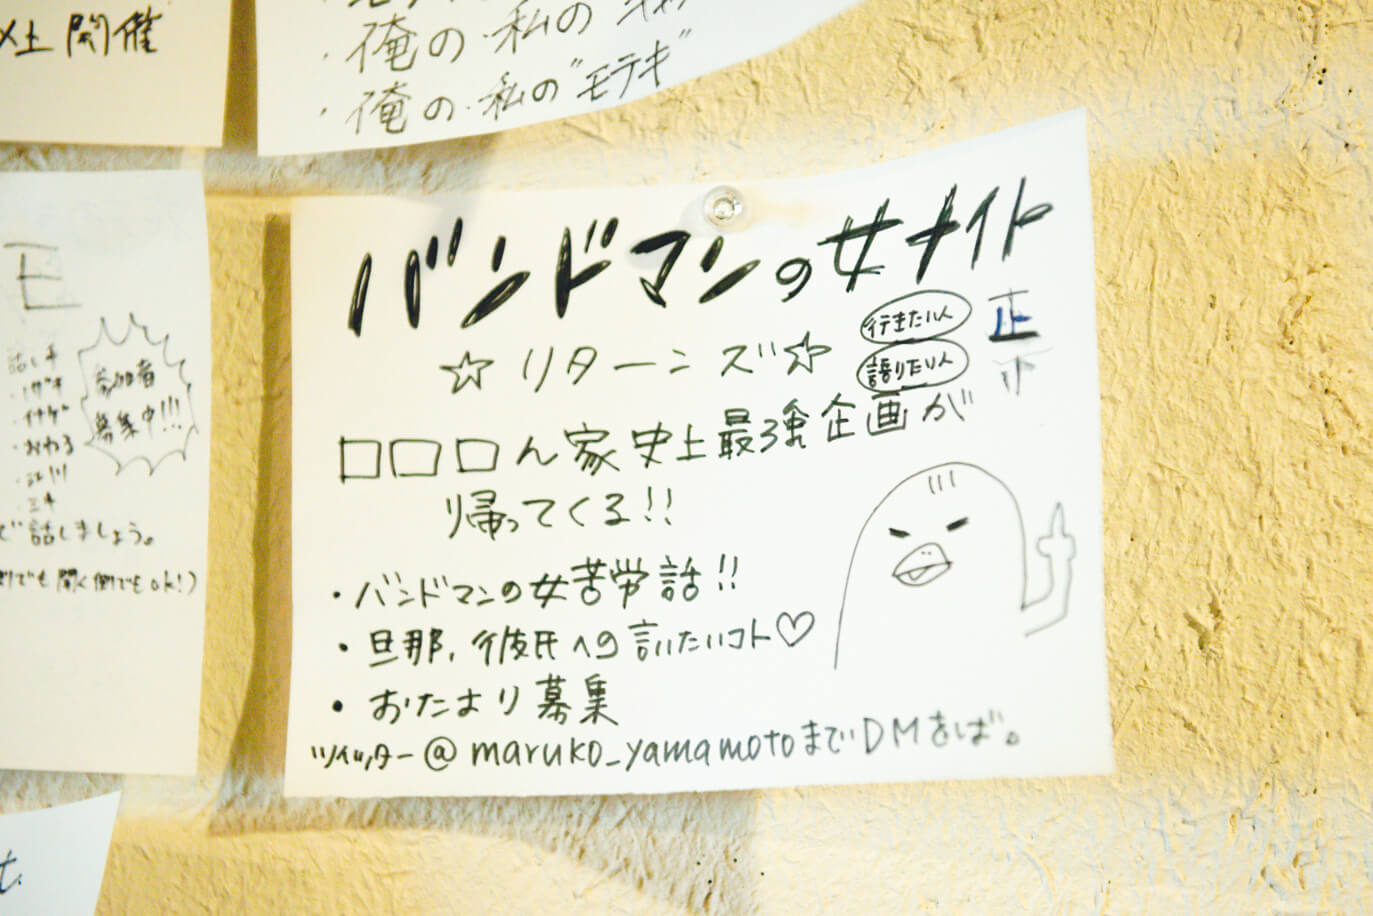 開催
・俺の・私の
・俺の・私の"モテキ"
バンドマンの女ナイト
☆リターンズ☆
行きたい人
語りたい人
正
ロロロん家史上最強企画が
帰ってくる!!
・バンドマンの女苦労話!!
・旦那、彼氏への言いたいコト♡
・おたより募集
ツイッター@maruko_yamamotoまでDMをば。
モ
参加者
募集中!!!
話し手
で話しましょう。
聞く側でもok!)
t.